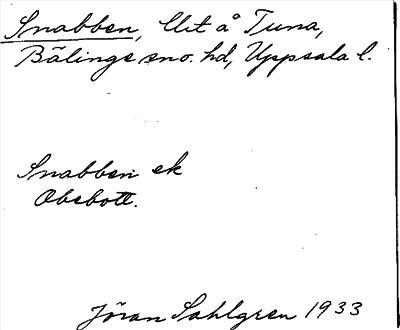 Snabben, Utt å Tuna,
Bälinge sno. hd, Uppsala l.
Snabben ek
Obebott.
Jöran Sahlgren 1933